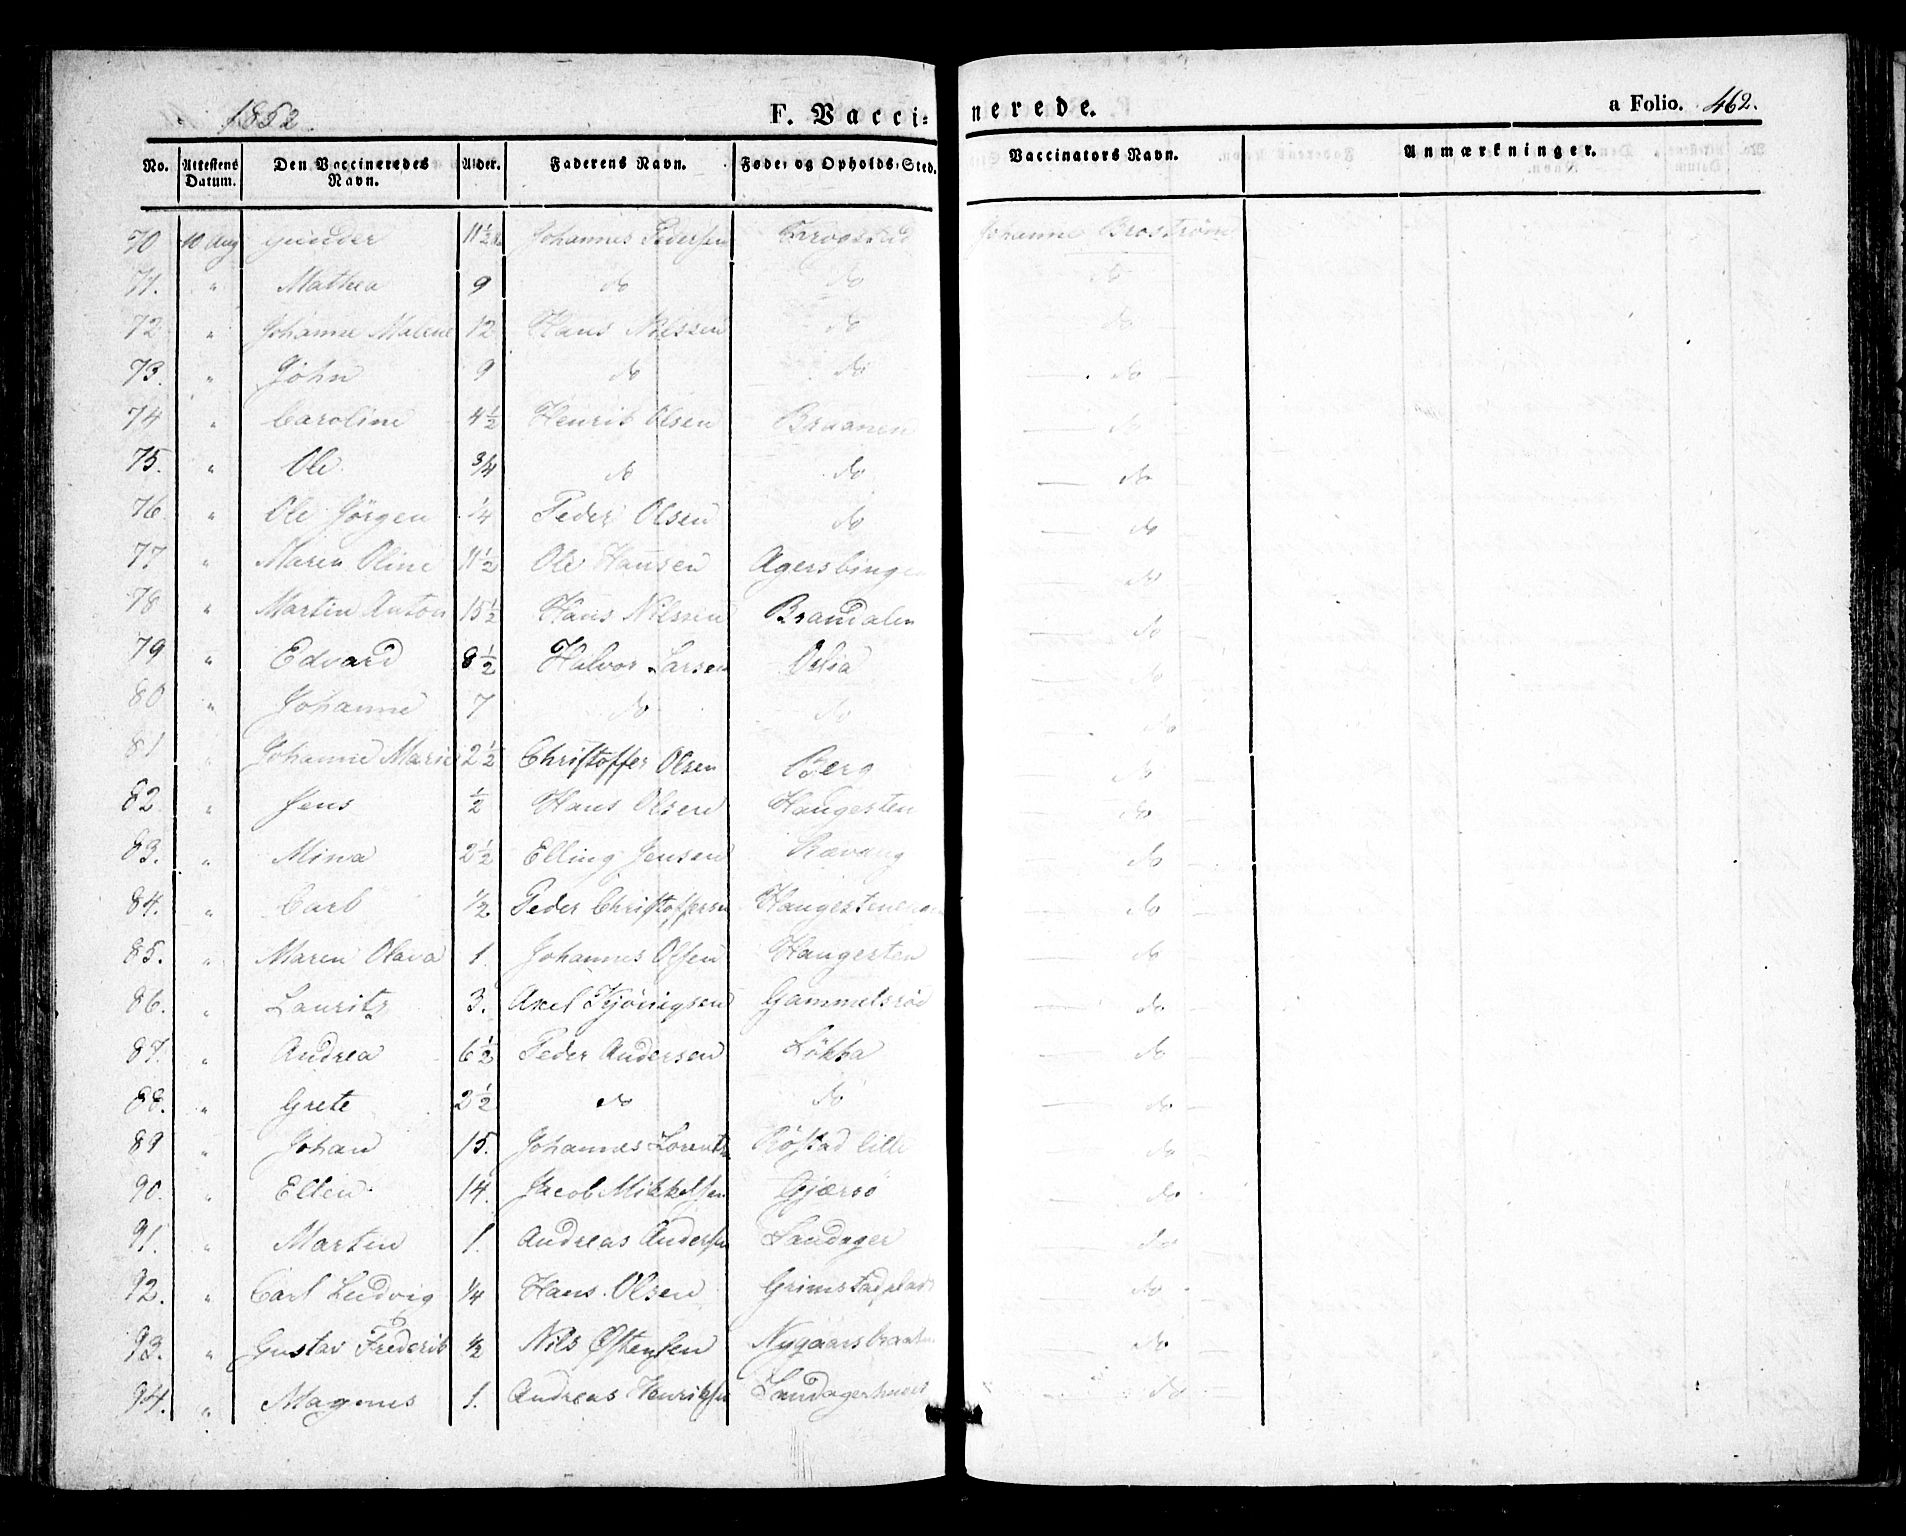 1852. F. Vacci= nerede. a Folio. 462.
No. Attestens Datum. Den Vaccineredes Navn. Alder. Faderens Navn. Føde- og Opholds-Sted. Vaccinators Navn. Anmærkninger.
70 10 Aug Gunder 11½ Johannes Pedersen Krogstad Johanne Brostrøm
71. " Mathea 9 do do do
72 " Johanne Malene 12 Hans Nilssen do do
73. " John 9 do do do
74 " Caroline 4½ Henrik Olsen Braanen do
75. " Ole 3/4 do do do
76 " Ole Jörgen 1/4 Peder Olsen do do
77 " Maren Oline 11½ Ole Hansen Agersbingen do
78 " Martin Anton 15½ Hans Nilssen Brandalen do
79 " Edvard 8½ Halvor Larsen Oelia do
80 " Johanne 7 do do do
81 " Johanne Marie 2½ Christoffer Olsen Berg do
82. " Jens ½ Hans Olsen Haugesten do
83. " Mina 2½ Elling Jensen Rævang do
84. " Carl ½. Peder Christoffersen do
85. " Maren Olava 1. Johannes Olsen Haugesten do
86. " Lauritz 3. Axel Kjönigsen Gammelsröd do
87. " Andrea 6½ Peder Andersen Lökka do
88. " Grete 2½ do do do
89 " Johan 15. Johannes Lorentz Röstad lille do
90. " Ellen 14. Jacob Mikkelsen Gjærsö do
91. " Martin 1. Andreas Andersen Sandager do
92. " Carl Ludvig 1/4 Hans Olsen Grimstadplads do
93. " Gustav Frederik ½ Nils Östensen Nygaarsbraaten do
94. " Magnus 1. Andreas Henriksen Sandagerhuus do